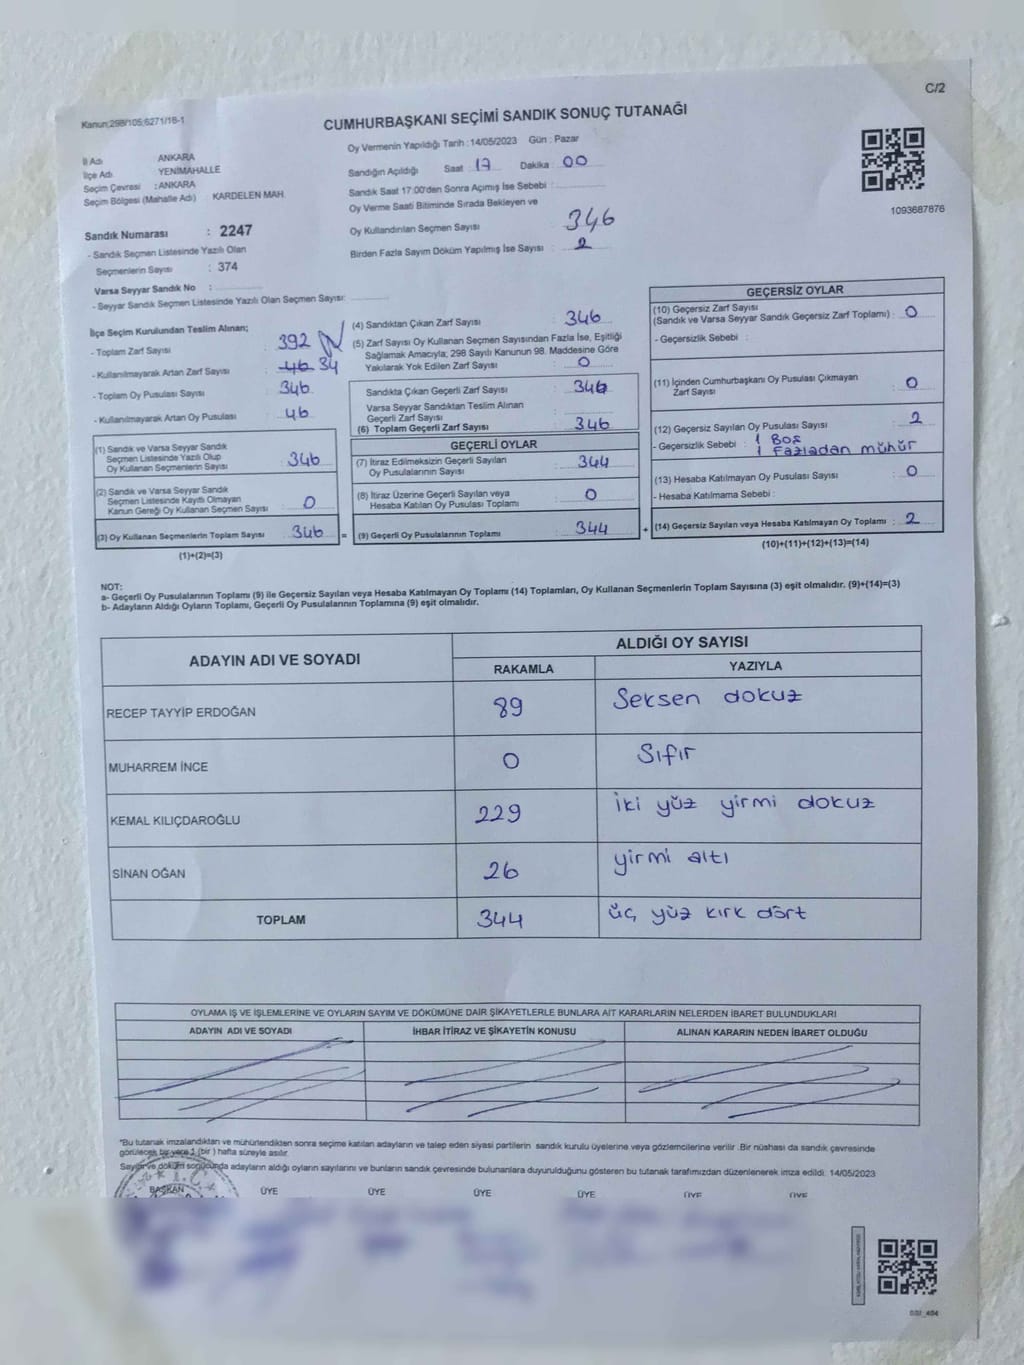 C/2
Kanun:298/105;6271/16-1
CUMHURBAŞKANI SEÇİMİ SANDIK SONUÇ TUTANAĞI
İl Adı ANKARA
İlçe Adı YENİMAHALLE
Seçim Çevresi :ANKARA
Seçim Bölgesi (Mahalle Adı) KARDELEN MAH.
Sandık Numarası : 2247
- Sandık Seçmen Listesinde Yazılı Olan
Seçmenlerin Sayısı : 374
Varsa Seyyar Sandık No :
- Seyyar Sandık Seçmen Listesinde Yazılı Olan Seçmen Sayısı:
Oy Vermenin Yapıldığı Tarih :14/05/2023 Gün : Pazar
Sandığın Açıldığı Saat : 17 Dakika : 00
Sandık Saat 17:00'den Sonra Açımış İse Sebebi :
Oy Verme Saati Bitiminde Sırada Bekleyen ve
Oy Kullandırılan Seçmen Sayısı : 346
Birden Fazla Sayım Döküm Yapılmış İse Sayısı : 2
1093687876
İlçe Seçim Kurulundan Teslim Alınan;
- Toplam Zarf Sayısı : 392
- Kullanılmayarak Artan Zarf Sayısı : 46 34
- Toplam Oy Pusulası Sayısı : 346
- Kullanılmayarak Artan Oy Pusulası : 46
(1) Sandık ve Varsa Seyyar Sandık
Seçmen Listesinde Yazılı Olup
Oy Kullanan Seçmenlerin Sayısı : 346
(2) Sandık ve Varsa Seyyar Sandık
Seçmen Listesinde Kayıtlı Olmayan
Kanun Gereği Oy Kullanan Seçmen Sayısı : 0
(3) Oy Kullanan Seçmenlerin Toplam Sayısı : 346 =
(1)+(2)=(3)
(4) Sandıktan Çıkan Zarf Sayısı : 346
(5) Zarf Sayısı Oy Kullanan Seçmen Sayısından Fazla İse, Eşitliği
Sağlamak Amacıyla; 298 Sayılı Kanunun 98. Maddesine Göre
Yakılarak Yok Edilen Zarf Sayısı : 0
Sandıkta Çıkan Geçerli Zarf Sayısı : 346
Varsa Seyyar Sandıktan Teslim Alınan
Geçerli Zarf Sayısı :
(6) Toplam Geçerli Zarf Sayısı : 346
GEÇERLİ OYLAR
(7) İtiraz Edilmeksizin Geçerli Sayılan
Oy Pusulalarının Sayısı : 344
(8) İtiraz Üzerine Geçerli Sayılan veya
Hesaba Katılan Oy Pusulası Toplamı : 0
(9) Geçerli Oy Pusulalarının Toplamı : 344 +
GEÇERSİZ OYLAR
(10) Geçersiz Zarf Sayısı
(Sandık ve Varsa Seyyar Sandık Geçersiz Zarf Toplamı) : 0
- Geçersizlik Sebebi :
(11) İçinden Cumhurbaşkanı Oy Pusulası Çıkmayan
Zarf Sayısı : 0
(12) Geçersiz Sayılan Oy Pusulası Sayısı : 2
- Geçersizlik Sebebi : 1 Boş
1 Fazladan mühür
(13) Hesaba Katılmayan Oy Pusulası Sayısı : 0
- Hesaba Katılmama Sebebi :
(14) Geçersiz Sayılan veya Hesaba Katılmayan Oy Toplamı : 2
(10)+(11)+(12)+(13)=(14)
NOT:
a- Geçerli Oy Pusulalarının Toplamı (9) ile Geçersiz Sayılan veya Hesaba Katılmayan Oy Toplamı (14) Toplamları, Oy Kullanan Seçmenlerin Toplam Sayısına (3) eşit olmalıdır. (9)+(14)=(3)
b- Adayların Aldığı Oyların Toplamı, Geçerli Oy Pusulalarının Toplamına (9) eşit olmalıdır.
ADAYIN ADI VE SOYADI ALDIĞI OY SAYISI
RAKAMLA YAZIYLA
RECEP TAYYİP ERDOĞAN 89 Seksen dokuz
MUHARREM İNCE 0 Sıfır
KEMAL KILIÇDAROĞLU 229 iki yüz yirmi dokuz
SİNAN OĞAN 26 yirmi altı
TOPLAM 344 üç yüz kırk dört
OYLAMA İŞ VE İŞLEMLERİNE VE OYLARIN SAYIM VE DÖKÜMÜNE DAİR ŞİKAYETLERLE BUNLARA AİT KARARLARIN NELERDEN İBARET BULUNDUKLARI
ADAYIN ADI VE SOYADI İHBAR İTİRAZ VE ŞİKAYETİN KONUSU ALINAN KARARIN NEDEN İBARET OLDUĞU
*Bu tutanak imzalandıktan ve mühürlendikten sonra seçime katılan adayların ve talep eden siyasi partilerin sandık kurulu üyelerine veya gözlemcilerine verilir .Bir nüshası da sandık çevresinde
görülecek bir yere 1 (bir ) hafta süreyle asılır.
Sayım ve döküm sonucunda adayların aldığı oyların sayılarını ve bunların sandık çevresinde bulunanlara duyurulduğunu gösteren bu tutanak tarafımızdan düzenlenerek imza edildi. 14/05/2023
BAŞKAN ÜYE ÜYE ÜYE ÜYE ÜYE ÜYE